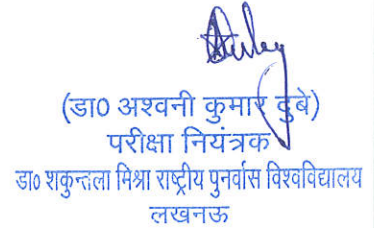 (डा० अश्वनी कुमार दुबे)
परीक्षा नियंत्रक
डा० शकुन्तला मिश्रा राष्ट्रीय पुनर्वास विश्वविद्यालय
लखनऊ